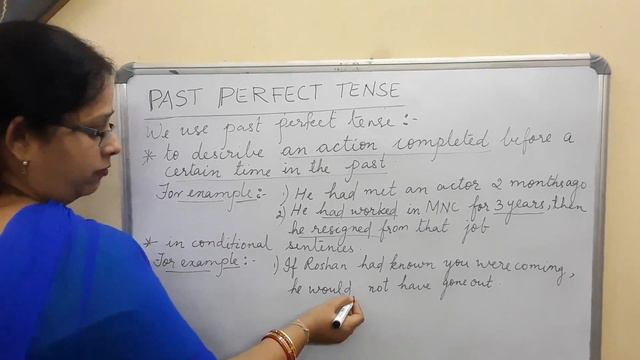 PAST PERFECT TENSE
We use past perfect tense :-
* to describe an action completed before a
certain time in the past
For example :- 1) He had met an actor 2 months ago
2) He had worked in MNC for 3 years, then
he resigned from that job
* in conditional sentences.
For example :- 1) If Roshan had known you were coming,
he would not have gone out.